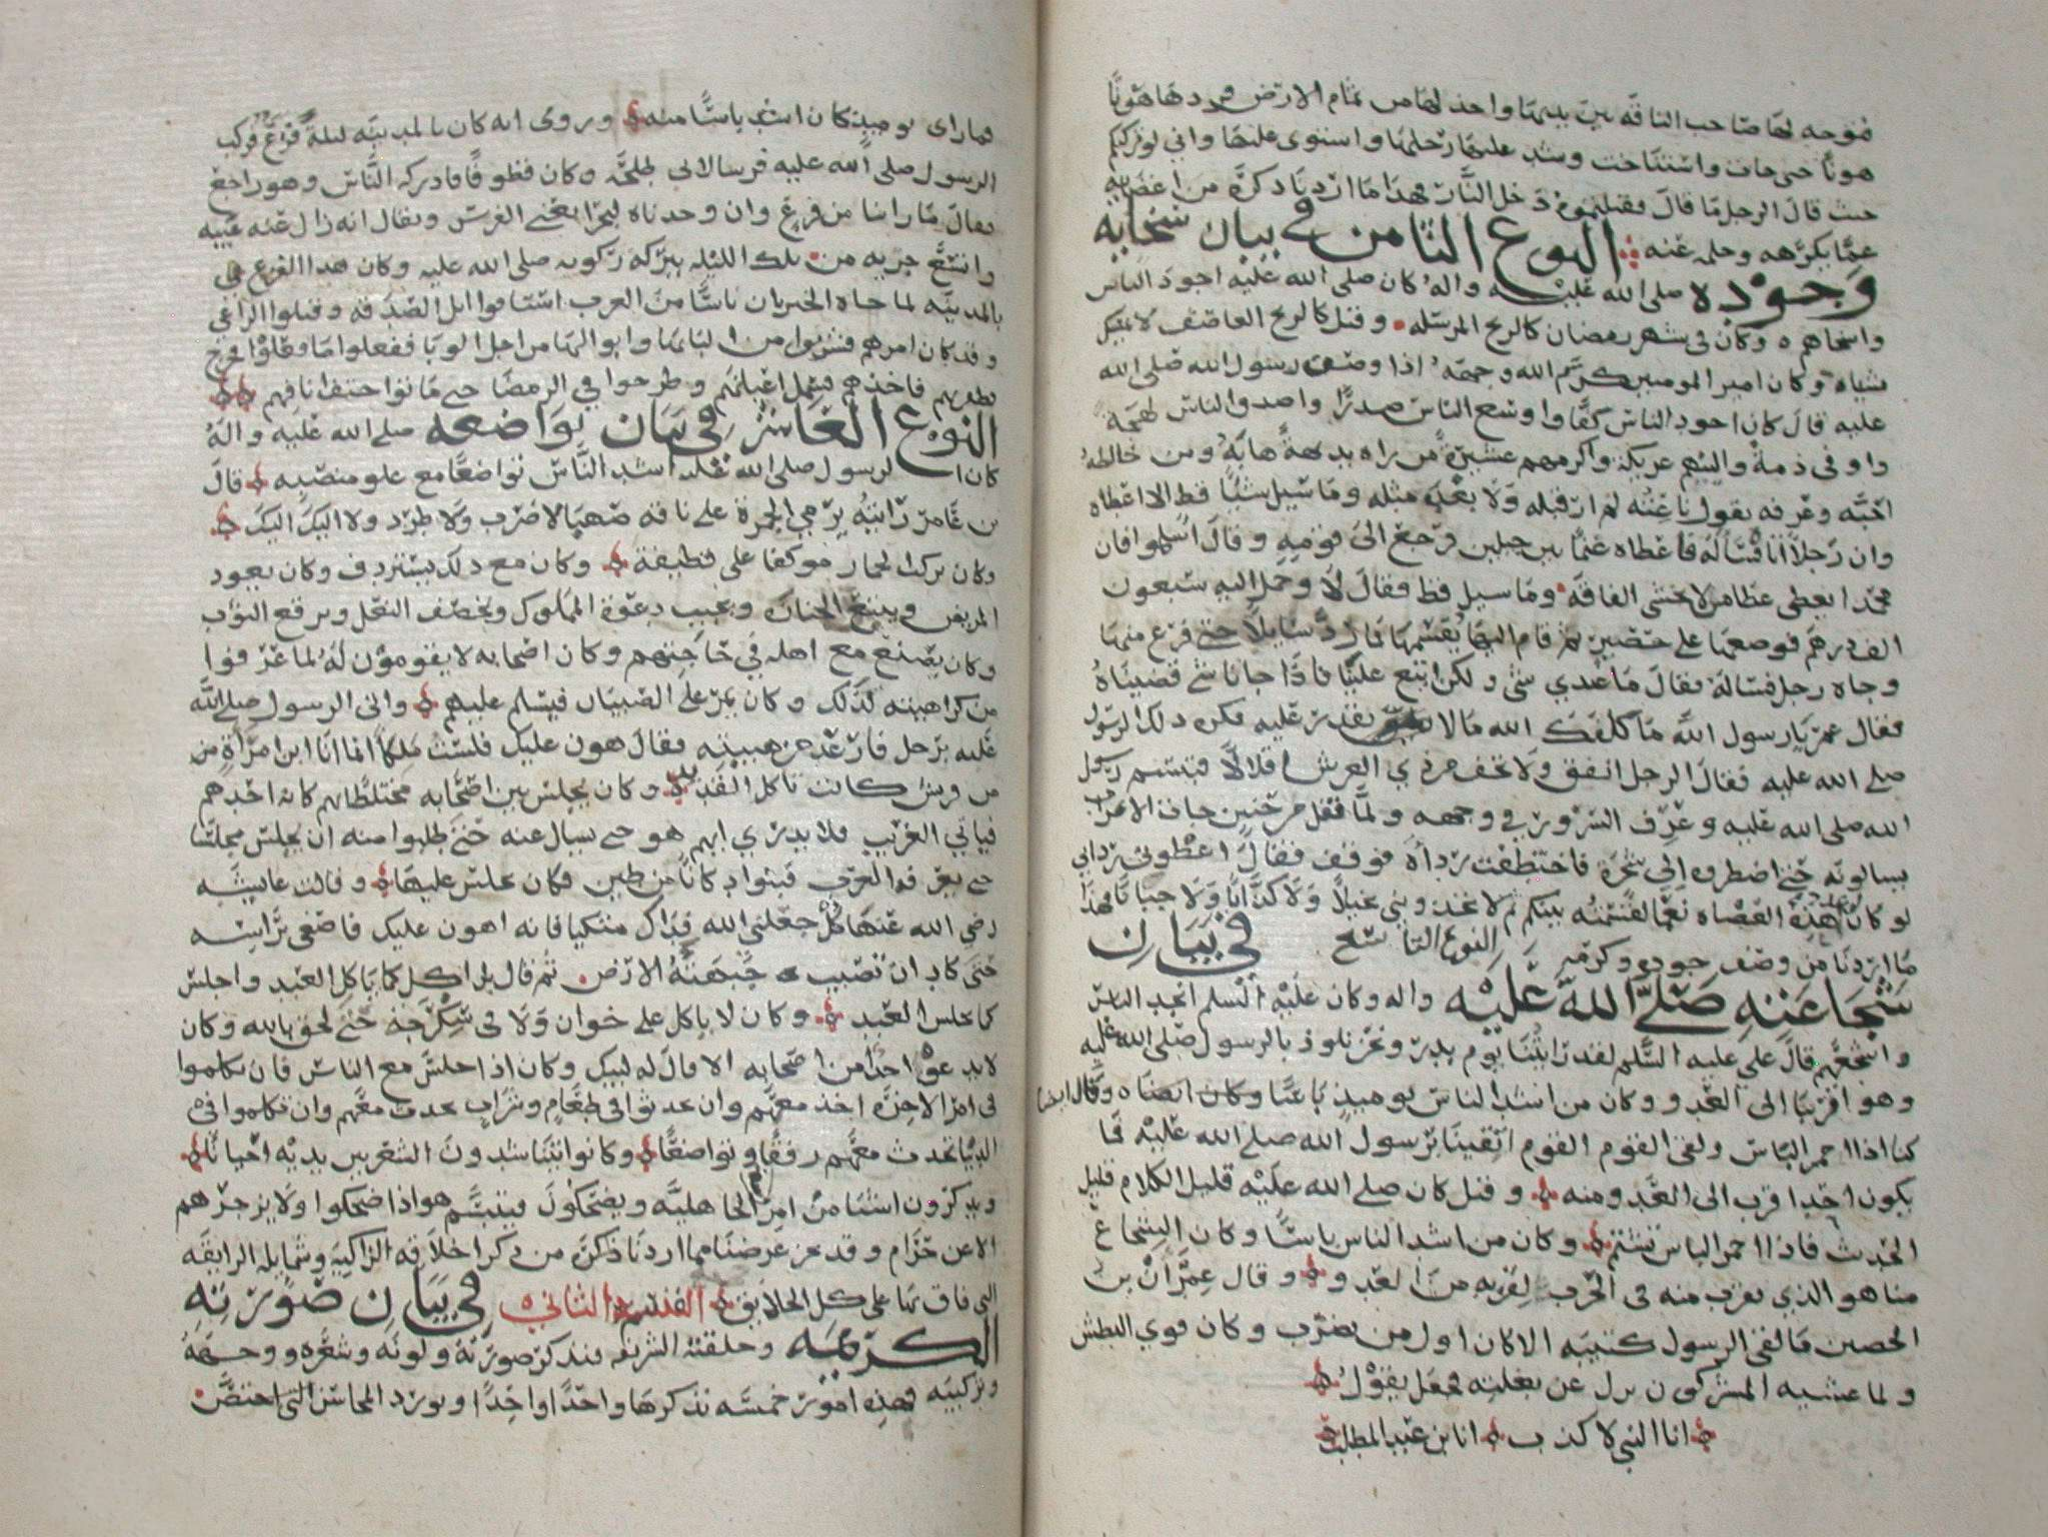 فتوجه لها صاحب الناقه بين يديها واخذ لها من تمام الارض فردها هونا
هونا حتى جات واستناخت وشد عليها رحلها واستوى عليها واني لو تركتكم
حيث قال الرجل ما قال فقتلتموه دخل النار فهذا ما اردنا ذكره من اغضايه
عما يكرهه وحلمه عنه النوع الثامن في بيان سخايه
وجوده صلى الله عليه واله كان صلى الله عليه اجود الناس
واسخاهم وكان في شهر رمضان كالريح المرسله وقيل كالريح العاصف لا يمسك
شياه وكان امير المومنين كرم الله وجهه اذا وصف رسول الله صلى الله
عليه قال كان اجود الناس كفا واوسع الناس صدرا واصدق الناس لهجة
واوفى ذمة والينهم عريكة واكرمهم عشيرة من راه بديهة هابه ومن خالطه
احبه وعرفه يقول ناعته لم ار قبله ولا بعده مثله وما سيل شيا قط الا اعطاه
وان رجلا اتاه فسأله فاعطاه غنما بين جبلين فرجع الى قومه وقال اسلموا فان
محمدا يعطي عطا من لا يخشى الفاقه وما سيل قط فقال لا وحمل اليه سبعون
الف درهم فوضعها على حصير ثم قام اليها يقسمها فما رد سايلا حتى فرغ منها
وجاه رجل فساله فقال ما عندي شي ولكن ابتع علي فاذا جانا شي قضيناه
فقال عمر يا رسول الله ما كلفك الله مالا تقدر عليه فكره ذلك الرسول
صلى الله عليه فقال الرجل انفق ولا تخف من ذي العرش اقلالا فتبسم رسول
الله صلى الله عليه وعرف السرور في وجهه ولما قفل من حنين جات الاعراب
يسالونه حتى اضطروه الى شجرة فاختطفت رداه فوقف فقال اعطوني رداي
لو كان عدد هذه العضاه نعما لقسمته بينكم ثم لا تجدوني بخيلا ولا كذابا ولا جبانا فهذا
ما اردنا من وصف جوده وكرمه النوع التاسع في بيان
شجاعته صلى الله عليه واله وكان عليه السلم انجد الناس
واشجعهم قال علي عليه السلم لقد رايتنا يوم بدر ونحن نلوذ بالرسول صلى الله عليه
وهو اقربنا الى العدو وكان من اشد الناس يوميذ باسا وقال ايضا
كنا اذا احمر الباس ولقي القوم القوم اتقينا برسول الله صلى الله عليه فما
يكون احد اقرب الى العدو منه وقيل كان صلى الله عليه قليل الكلام قليل
الحديث فاذا احمر الباس تشمر وكان من اشد الناس باسا وكان الشجاع
منا هو الذي يقرب منه في الحرب لقربه من العدو وقال عمران بن
الحصين ما لقي الرسول كتيبه الا كان اول من يضرب وكان قوي البطش
ولما غشيه المشركون نزل عن بغلته فجعل يقول
انا النبي لا كذب انا بن عبد المطلب
فما راى يوميذ كان اشد باسا منه وروى انه كان بالمدينه ليلة فزع فركب
الرسول صلى الله عليه فرسا لابي طلحه وكان قطوفا فادركه الناس وهو راجع
فقال ما راينا من فزع وان وجدناه لبحرا يعني الفرس ويقال انه زال عنه عيبه
واتسع جريه من تلك الليله ببركه ركوبه صلى الله عليه وكان هذا الفزع في
بالمدينه لما جاه الخبر بان ناسا من العرب استاقوا ابل الصدقه وقتلوا الراعي
وقد كان امرهم فشربوا من البانها وابوالها من اجل الوبا ففعلوا
فاخذهم فسمل اعينهم وطرحوا في الرمضا حتى ماتوا حتف انافهم
النوع العاشر في بيان تواضعه صلى الله عليه واله
كان الرسول صلى الله عليه اشد الناس تواضعا مع علو منصبه قال
بن عامر رايته يرمي الجمرة على ناقه صهبا لا ضرب ولا طرد ولا اليك اليك
وكان يركب الحمار موكفا على قطيفة وكان مع ذلك يستردف وكان يعود
المريض ويتبع الجنازه ويجيب دعوة المملوك ويخصف النعل ويرقع الثوب
وكان يصنع مع اهله في حاجتهم وكان اصحابه لا يقومون له لما عرفوا
من كراهيته لذلك وكان يمر على الصبيان فيسلم عليهم واتى الرسول صلى الله
عليه برجل فارعد من هيبته فقال هون عليك فلست ملكا انما انا ابن امراة من
من قريش كانت تاكل القديد وكان يجلس بين اصحابه مختلطا بهم كانه احدهم
فياتي الغريب فلا يدري ايهم هو حتى يسال عنه حتى طلبوا منه ان يجلس مجلسا
حتى يعرفه الغريب فبنوا دكانا من طين فكان يجلس عليها وقالت عايشه
رضي الله عنها كل جعلني الله فداك متكيا فانه اهون عليك فاصغى براسه
حتى كاد ان تصيب جبهته الارض ثم قال بل اكل كما ياكل العبد واجلس
كما يجلس العبد وكان لا ياكل على خوان ولا في سكرجة حتى لحق بالله وكان
لا يدعوه احدا من اصحابه الا قال له لبيك وكان اذا جلس مع الناس فان تكلموا
في امر الاخرة اخذ معهم وان تحدثوا في طعام وشراب تحدث معهم وان تكلموا في
الدنيا تحدث معهم رفقا وتواضعا وكانوا يتناشدون الشعر بين يديه احيانا
ويذكرون اشيا من امر الجاهليه ويضحكون فيتبسم هو اذا ضحكوا ولا يزجرهم
الا عن حرام وقد عن غرضنا مما اردنا ذكره من ذكر اخلاقه الزاكية وشمايله الرايقه
التي فاق بها على كل الخلايق القسم الثاني في بيان صورته
الكريمه وخلقته الشريفه فنذكر صورته ولونه وشعره ووجهه
وتركيبه فهذه امور خمسه نذكرها واحدا واحدا ونورد المحاسن التي اختص